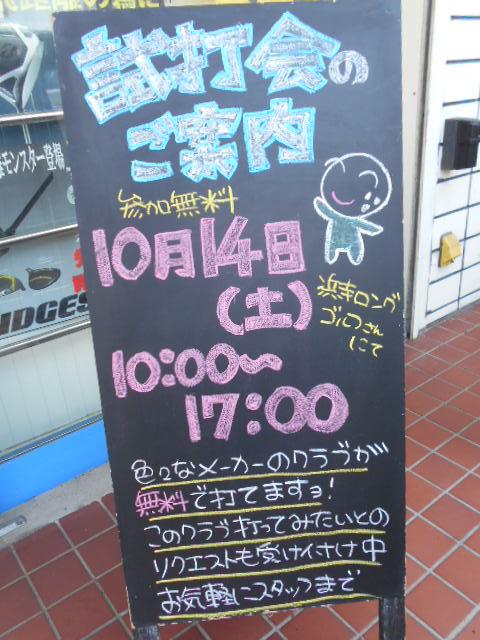 試打会の
ご案内
参加無料
10月14日
(土)
浜寺ロング
ゴルフさん
にて
10:00〜
17:00
色々なメーカーのクラブが
無料で打てますョ!
このクラブ打ってみたいとの
リクエストも受け付け中
お気軽にスタッフまで
モンスター登場
IDGES